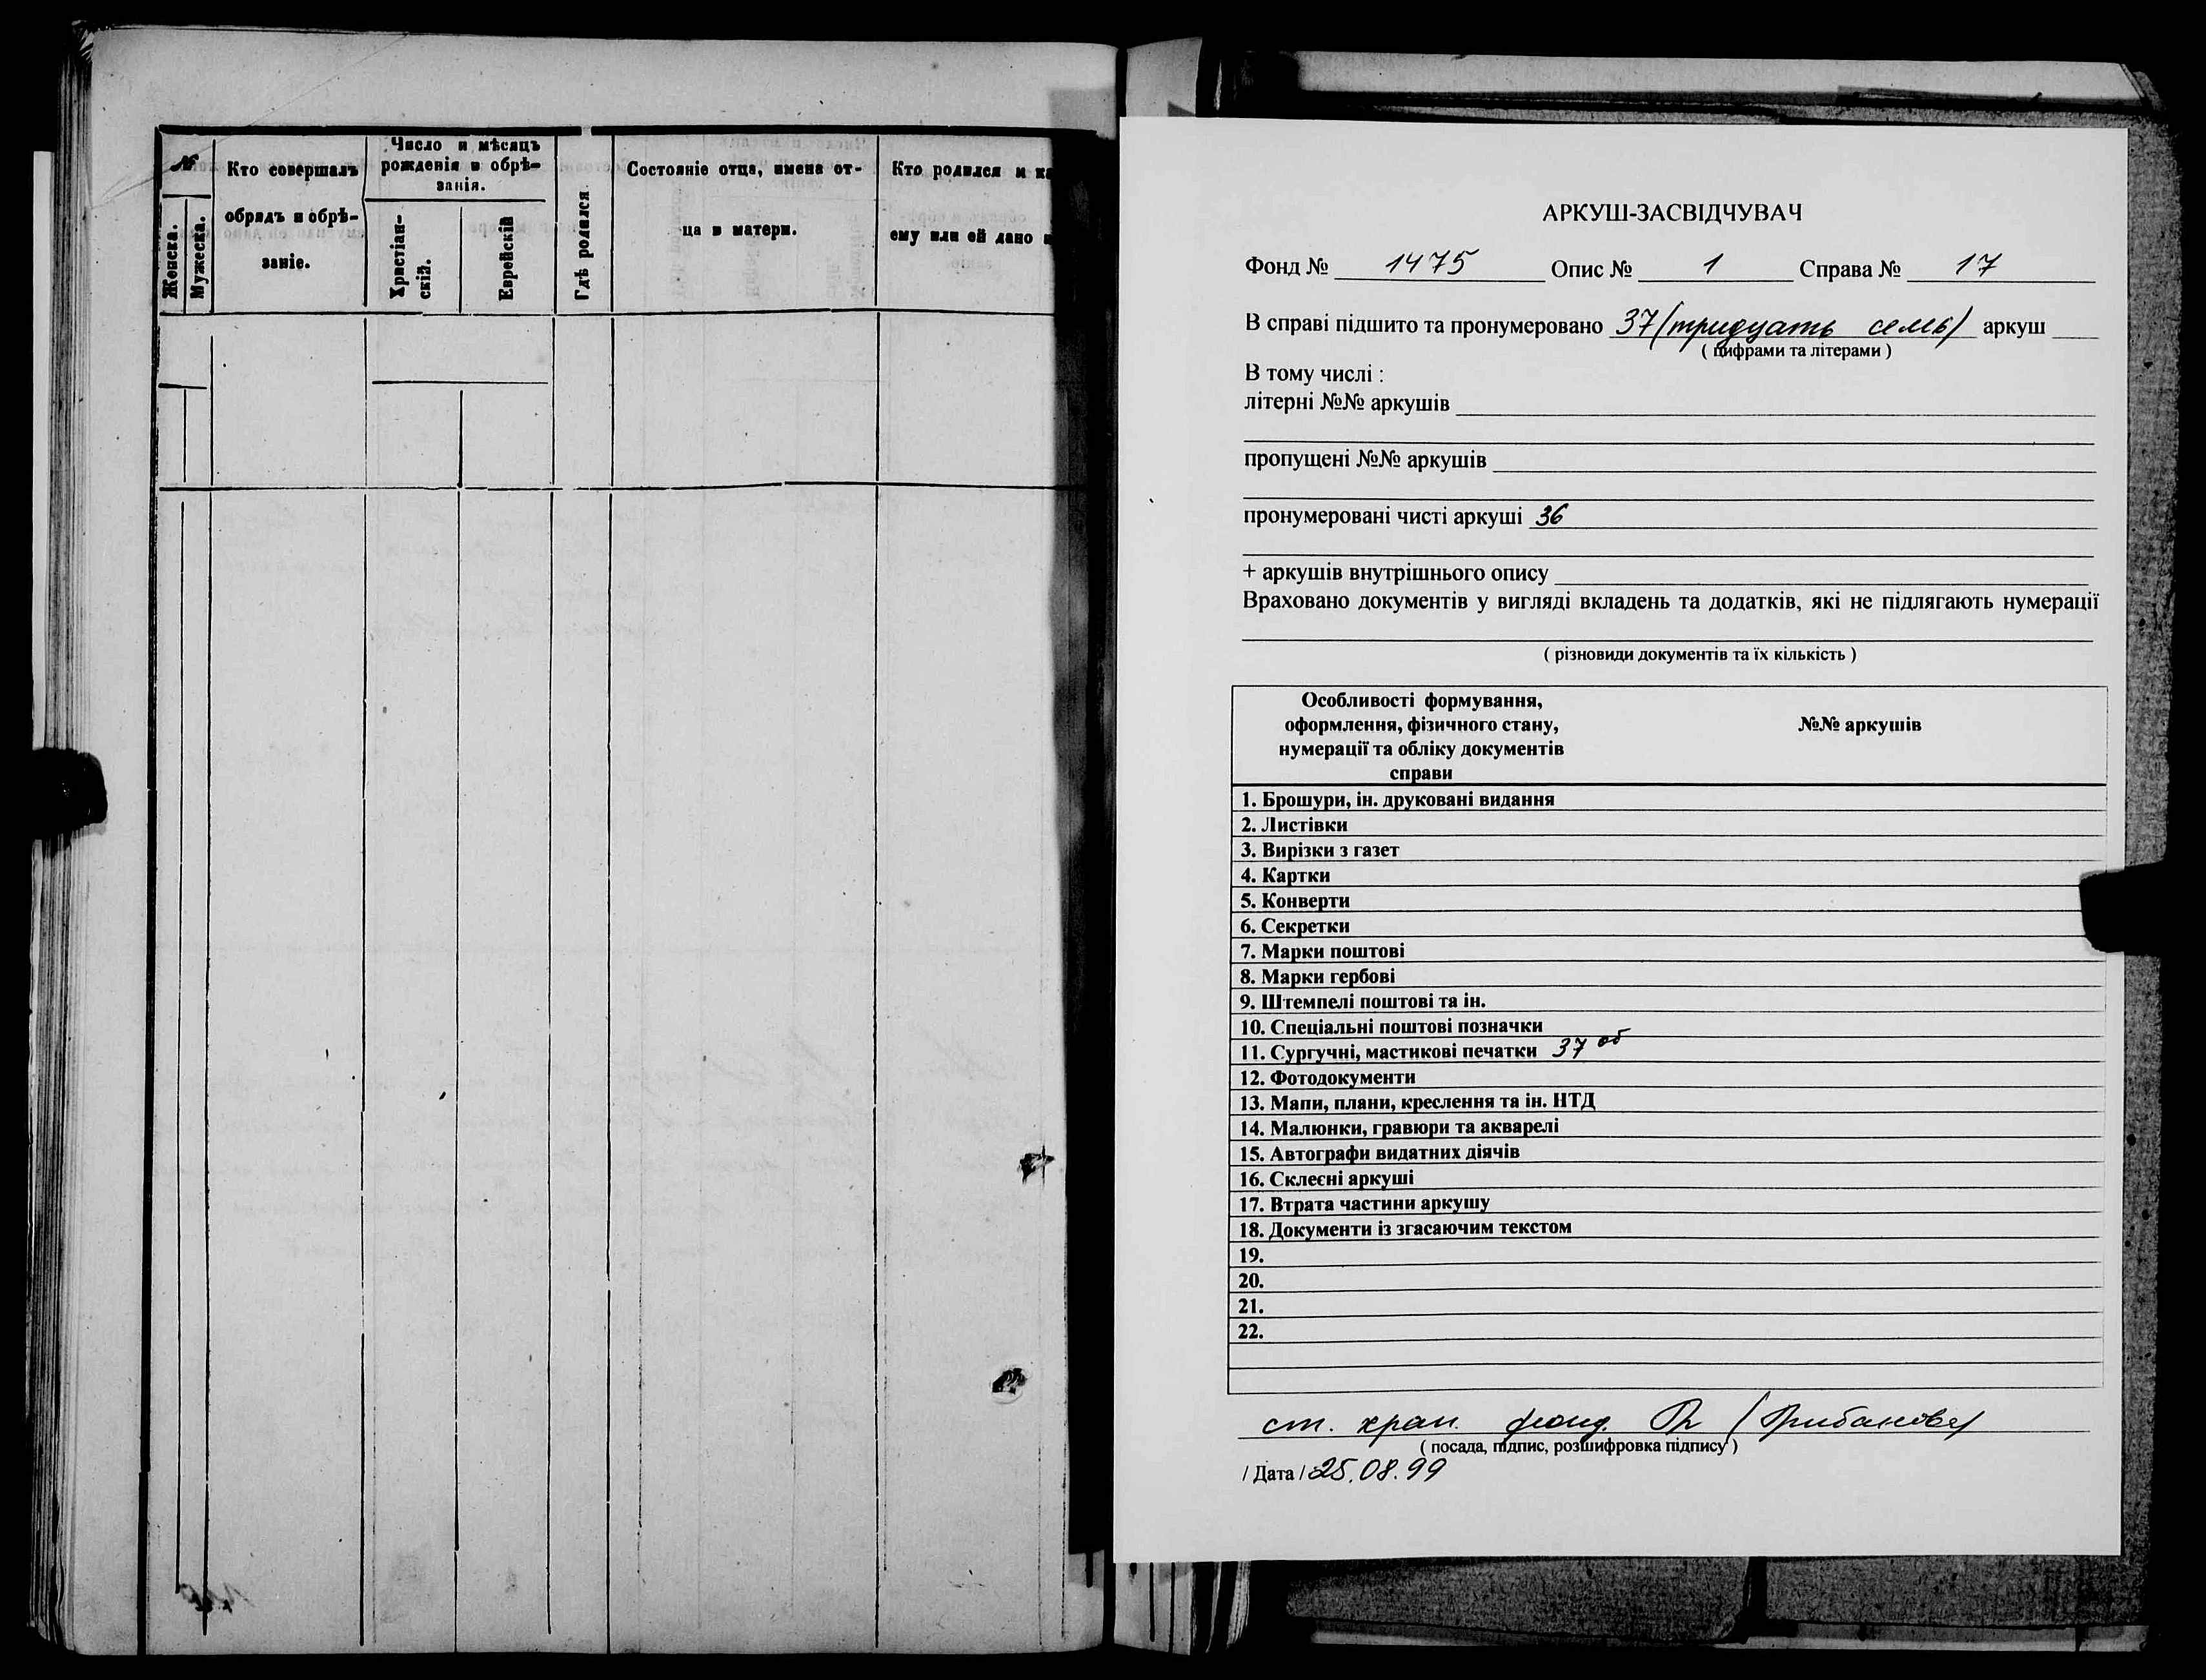 №
Женска.
Мужеска.
Кто совершалъ
обрядъ и обрѣ-
заніе.
Число и мѣсяцъ
рожденія и обрѣ-
занія.
Христіан-
скій.
Еврейскій
Гдѣ родился
Состояніе отца, имена от-
ца и матери.
Кто родился и ка
ему или ей дано и
АРКУШ-ЗАСВІДЧУВАЧ
Фонд № 1475 Опис № 1 Справа № 17
В справі підшито та пронумеровано 37 (тридцать семь) аркуш
( цифрами та літерами )
В тому числі :
літерні №№ аркушів
пропущені №№ аркушів
пронумеровані чисті аркуші 36
+ аркушів внутрішнього опису
Враховано документів у вигляді вкладень та додатків, які не підлягають нумерації
( різновиди документів та їх кількість )
Особливості формування,
оформлення, фізичного стану,
нумерації та обліку документів
справи
№№ аркушів
1. Брошури, ін. друковані видання
2. Листівки
3. Вирізки з газет
4. Картки
5. Конверти
6. Секретки
7. Марки поштові
8. Марки гербові
9. Штемпелі поштові та ін.
10. Спеціальні поштові позначки
11. Сургучні, мастикові печатки 37 об
12. Фотодокументи
13. Мапи, плани, креслення та ін. НТД
14. Малюнки, гравюри та акварелі
15. Автографи видатних діячів
16. Склеєні аркуші
17. Втрата частини аркушу
18. Документи із згасаючим текстом
19.
20.
21.
22.
ст. хран. фонд.
( посада, підпис, розшифровка підпису )
/ Дата / 25.08.99